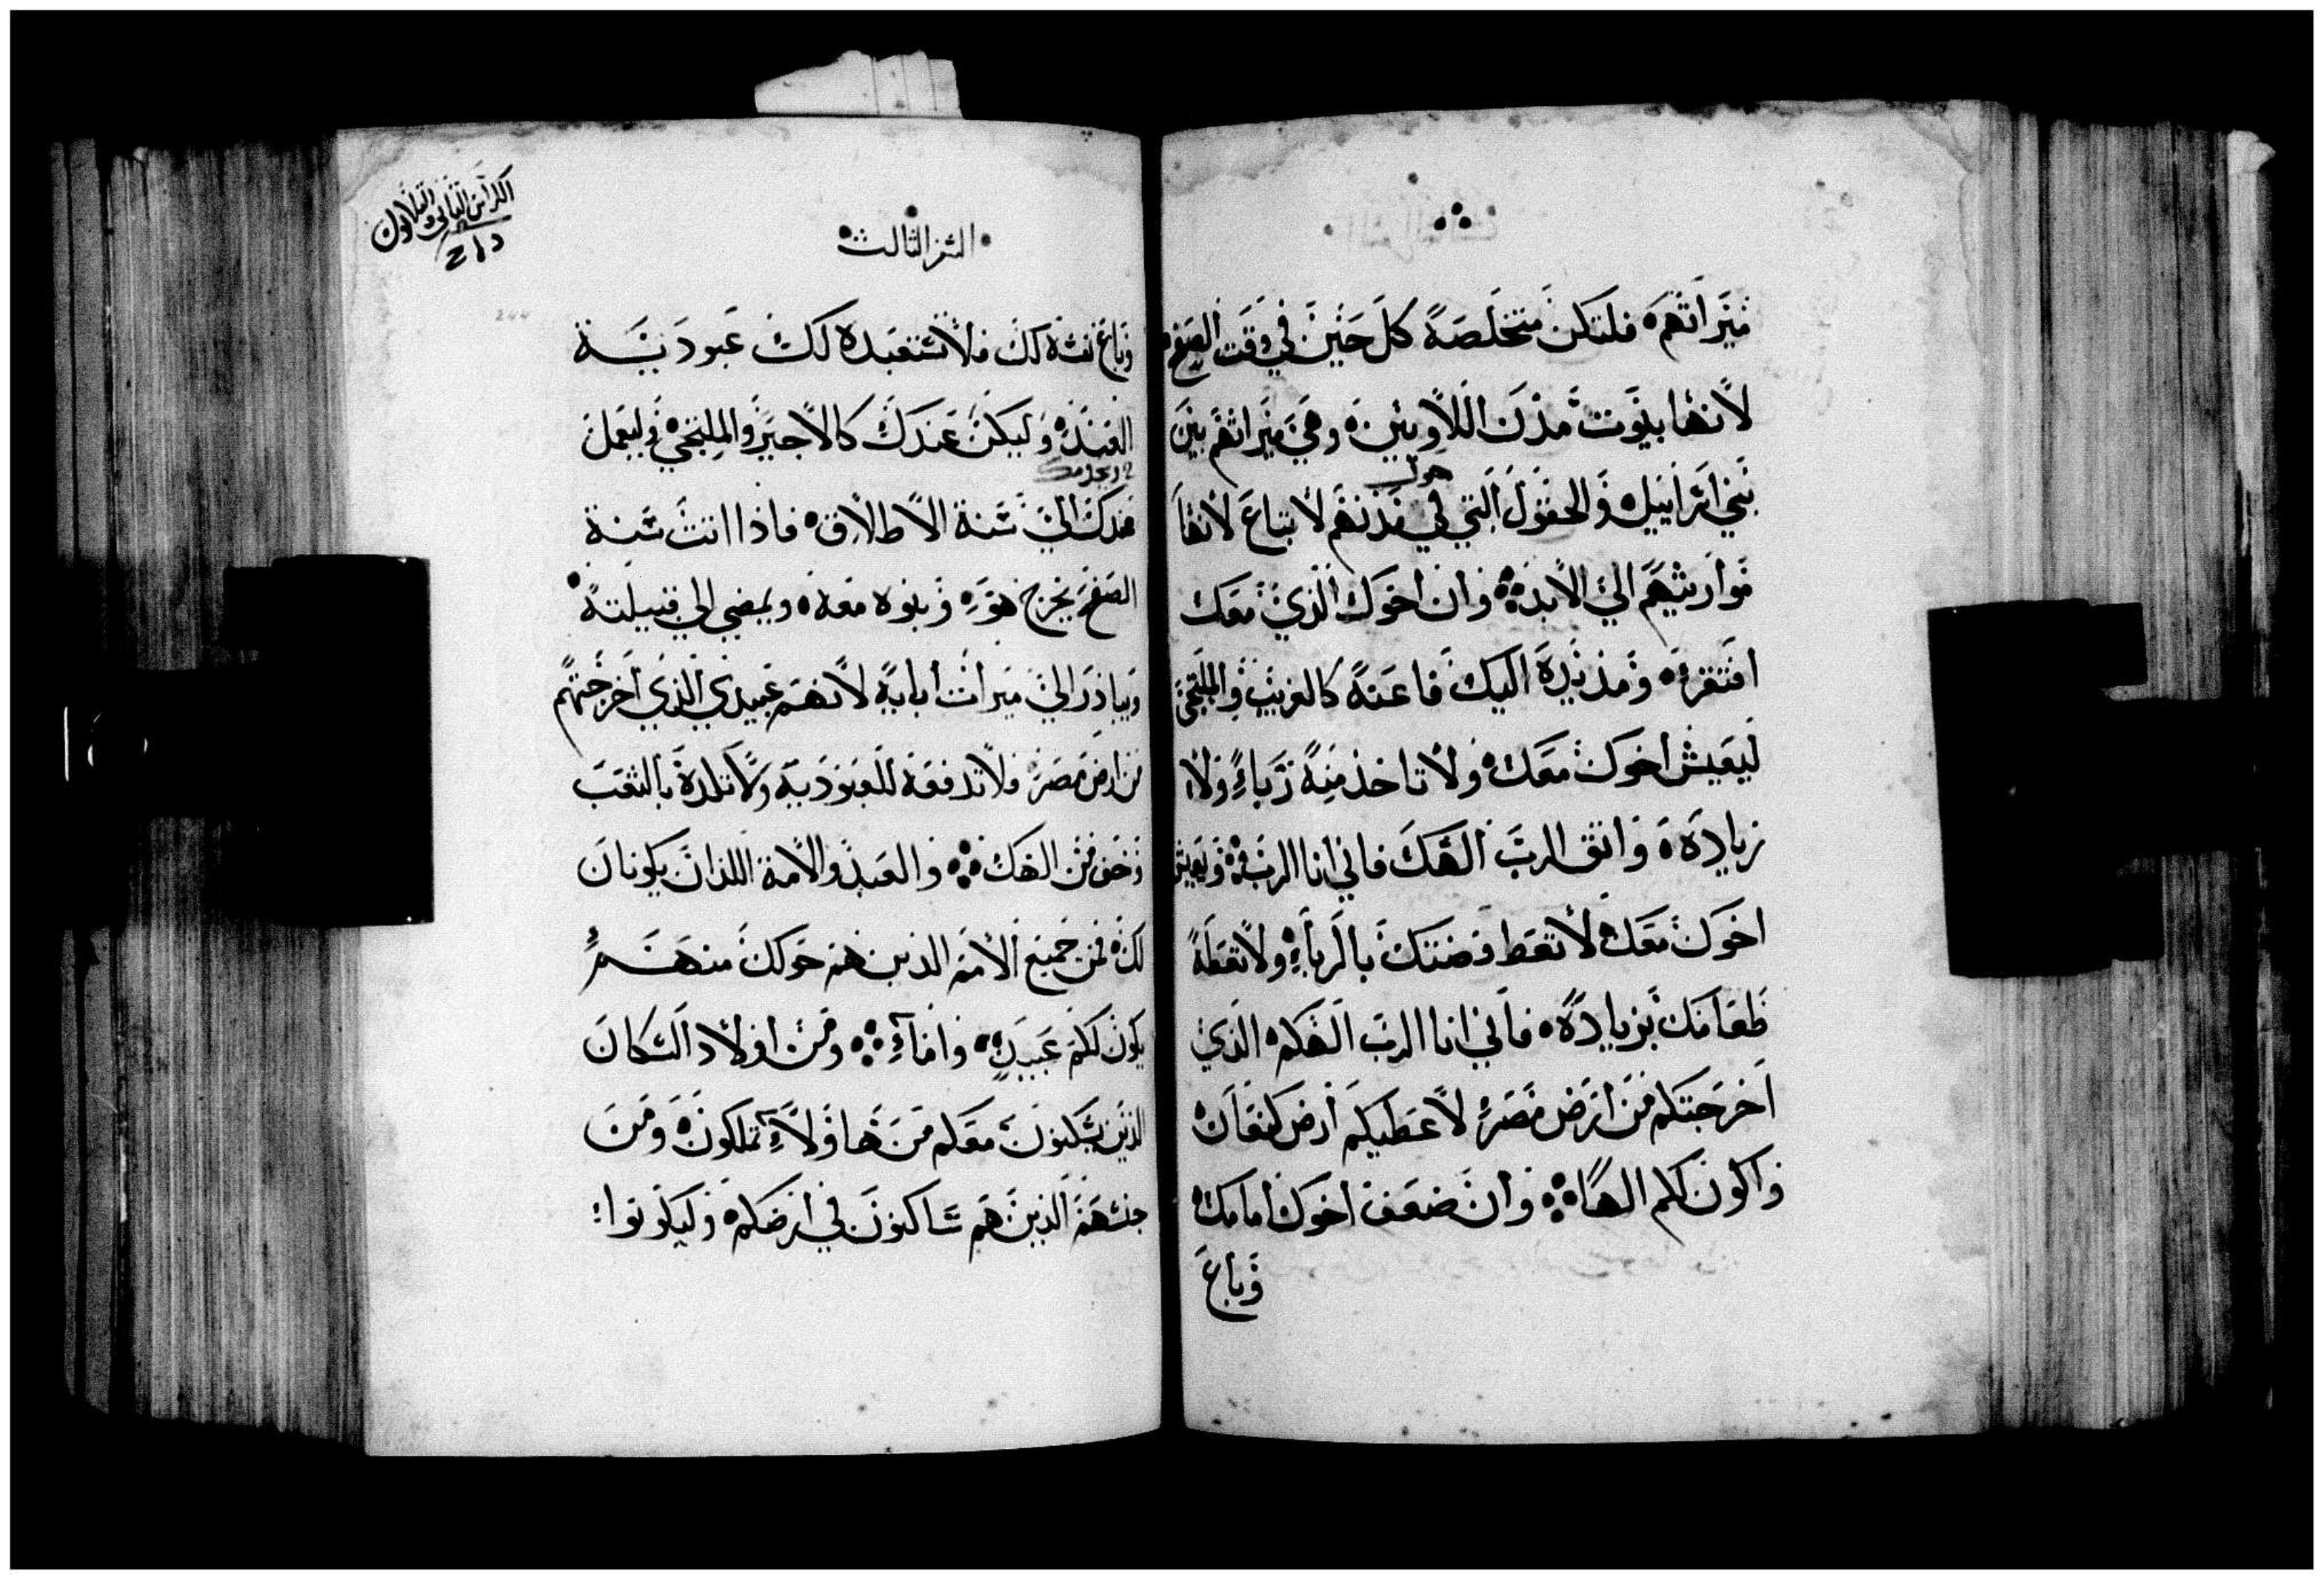 ميراثهم فلتكن متخلصة كل حين في وقت الصفح
لانها بيوت مدن اللاويين وهي ميراثهم بين
بني اسراييل والحقول التي في مدنهم لا تباع لانها
حول
مواريثهم الي الابد وان اخوك الذي معك
افتقر ومد يده اليك فاعنه كالغريب والملتجي
ليعيش اخوك معك ولا تاخذ منه رباء ولا
زيادة واتق الرب الهك فاني انا الرب ويعيش
اخوك معك لا تعط فضتك بالرباء ولا تعطه
طعامك بزيادة فاني انا الرب الهكم الذي
اخرجتكم من ارض مصر لاعطيكم ارض كنعان
واكون لكم الها وان ضعف اخوك امامك
وباع
السفر الثالث
الكراس الثاني والثلاثون
وباع نفسه لك فلا تستعبده لك عبودية
العبيد وليكن عندك كالاجير والملتجي وليعمل
عندك الي سنة الاطلاق فاذا اتت سنة
الصفح يخرج هو وبنوه معه ويمضي الي قبيلته
ويبادر الي ميراث ابايه لانهم عبيدي الذي اخرجتهم
من ارض مصر فلا تدفعه للعبودية ولا تلده بالتعب
وخف من الهك والعبد والامة اللذان يكونان
لك فمن جميع الامم الذين هم حولك منهم
يكون لكم عبيد واماء ومن اولاد السكان
الذين يسكنون معكم من هاولاء تملكون ومن
جنسهم الذين هم ساكنون في ارضكم وليكونوا